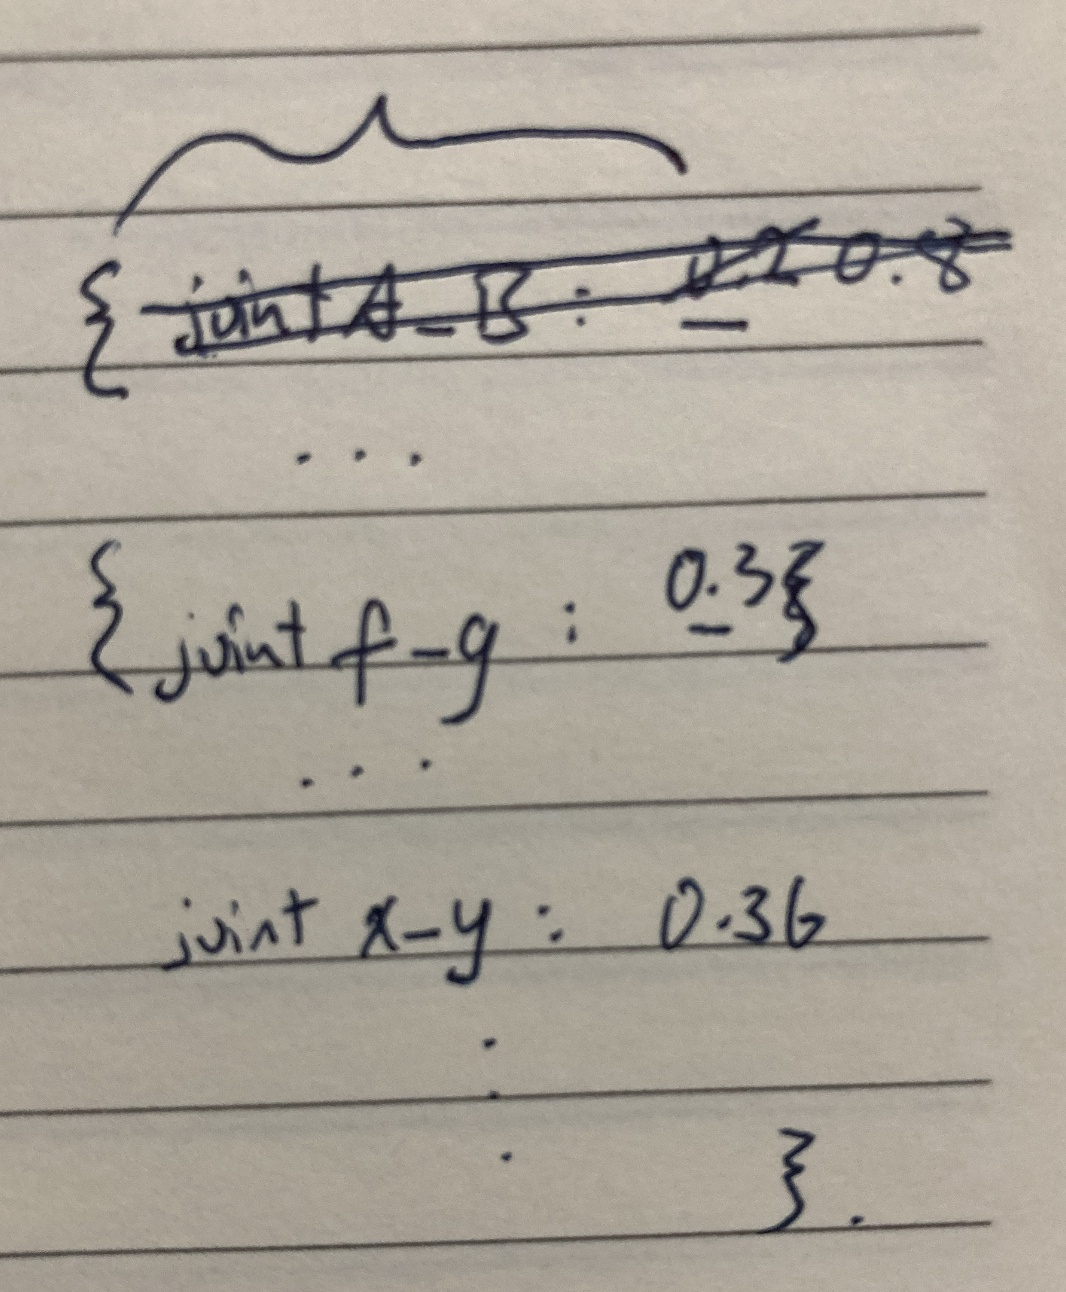 { joint A-B : 0.2 0.8
...
{ joint f-g : 0.3}
...
joint x-y : 0.36
.
.
.
}.